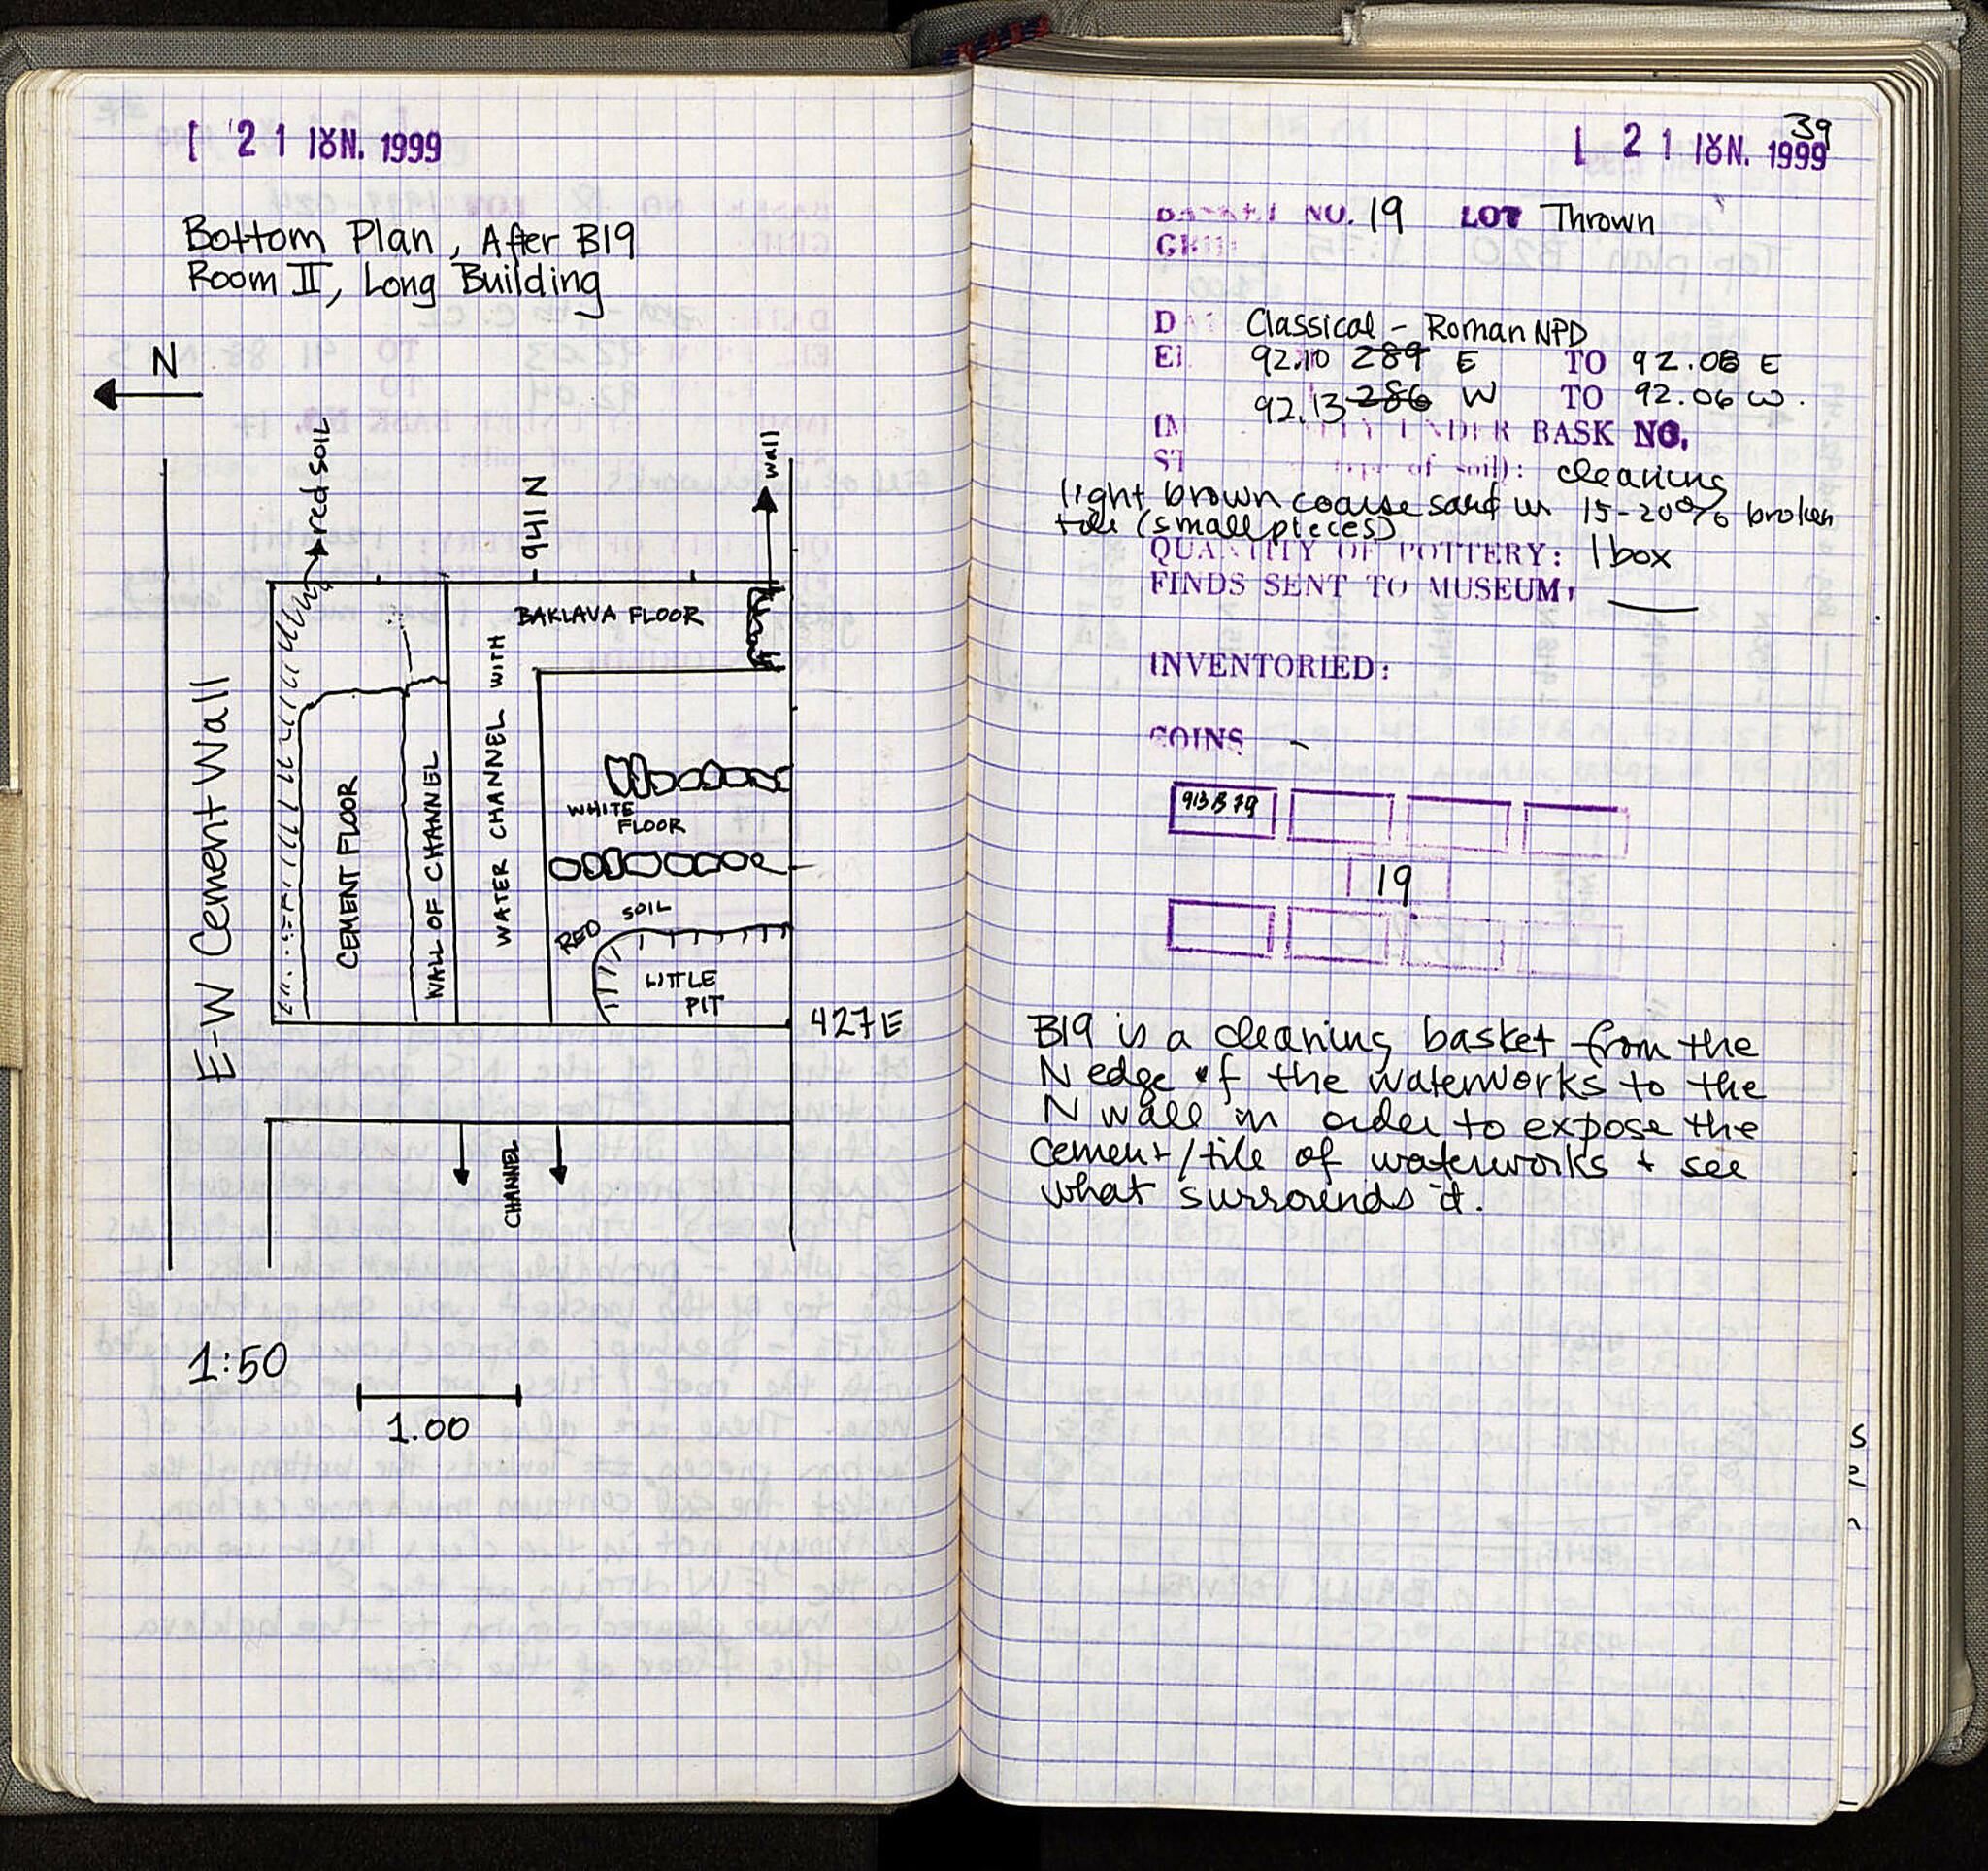 21 ΙΟΥΝ. 1999
Bottom Plan, After B19
Room II, Long Building
N
red soil
941 N
wall
BAKLAVA FLOOR
E-W Cement Wall
CEMENT FLOOR
WALL OF CHANNEL
WATER CHANNEL WITH
WHITE
FLOOR
RED SOIL
LITTLE
PIT
427E
CHANNEL
1:50
1.00
39
21 ΙΟΥΝ. 1999
NO. 19 LOT Thrown
GRID:
Classical - Roman NPD
92.10 289 E TO 92.08 E
92.13 286 W TO 92.06 W.
UNDER BASK NO.
type of soil): cleaning
light brown coarse sand w 15-20% broken
tile (small pieces)
QUANTITY OF POTTERY: 1 box
FINDS SENT TO MUSEUM: —
INVENTORIED:
COINS -
913 B 79
19
B19 is a cleaning basket from the
N edge of the waterworks to the
N wall in order to expose the
cement/tile of waterworks + see
what surrounds it.